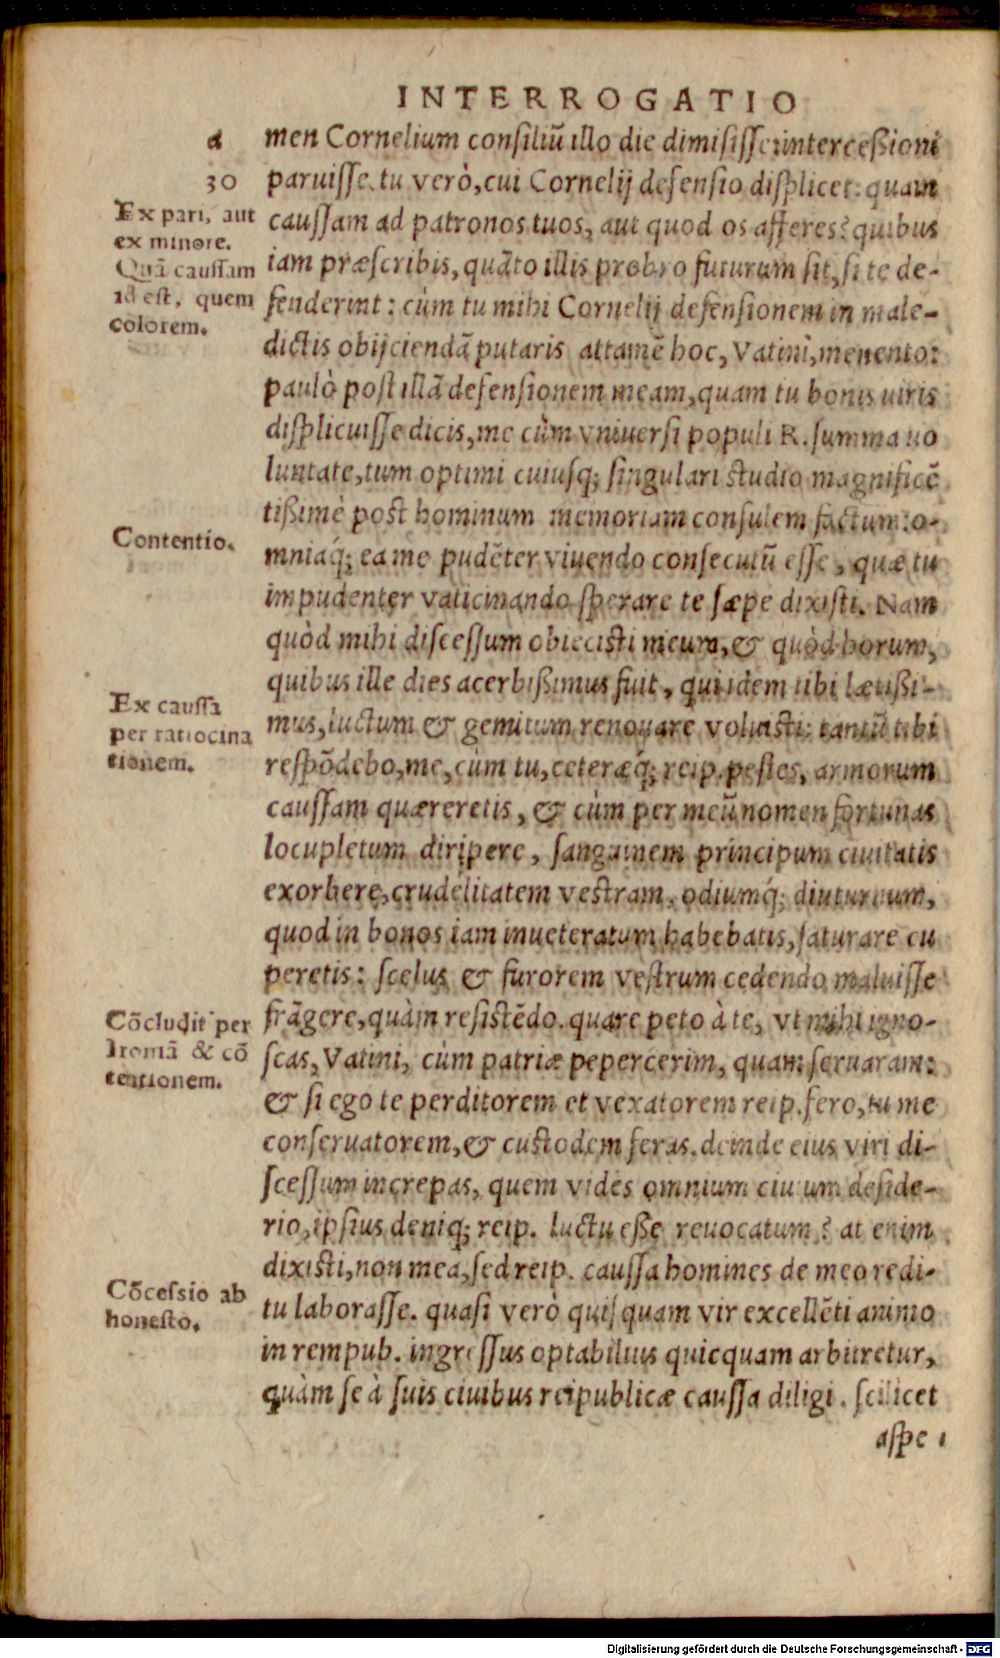 INTERROGATIO
a
30
Ex pari, aut
ex minore.
Quā caussam
id est, quem
colorem.
Contentio.
Ex caussa
per ratiocina
tionem.
Cōcludit per
Ironiā & cō
tentionem.
Cōcessio ab
honesto.
men Cornelium consiliū illo die dimisisse: intercessioni
paruisse. tu verò, cui Cornelij defensio displicet: quam
caussam ad patronos tuos, aut quod os afferes? quibus
iam præscribis, quāto illis probro futurum sit, si te de-
fenderint: cùm tu mihi Cornelij defensionem in male-
dictis obijciendā putaris attamē hoc, Vatini, memento:
paulò post illā defensionem meam, quam tu bonis uiris
displicuisse dicis, me cùm vniuersi populi R. summa uo
luntate, tum optimi cuiusq; singulari studio magnificē
tissimè post hominum memoriam consulem factum: o-
mniaq́; ea me pudēter viuendo consecutū esse, quæ tu
impudenter vaticinando sperare te sæpe dixisti. Nam
quòd mihi discessum obiecisti meum, & quòd horum,
quibus ille dies acerbissimus fuit, qui idem tibi lætissi-
mus, luctum & gemitum renouare voluisti: tantū tibi
respōdebo, me, cùm tu, ceteræq́; reip. pestes, armorum
caussam quæreretis, & cùm per meū nomen fortunas
locupletum diripere, sanguinem principum ciuitatis
exorbere, crudelitatem vestram, odiumq́; diuturnum,
quod in bonos iam inueteratum habebatis, saturare cu
peretis: scelus & furorem vestrum cedendo maluisse
frāgere, quàm resistēdo. quare peto à te, vt mihi igno-
scas, Vatini, cùm patriæ pepercerim, quam seruaram:
& si ego te perditorem et vexatorem reip. fero, tu me
conseruatorem, & custodem feras. deinde eius viri di-
scessum increpas, quem vides omnium ciuium deside-
rio, ipsius deniq; reip. luctu esse reuocatum? at enim
dixisti, non mea, sed reip. caussa homines de meo redi-
tu laborasse. quasi verò quisquam vir excellēti animo
in rempub. ingressus optabilius quicquam arbitretur,
quàm se à suis ciuibus reipublicæ caussa diligi. scilicet
aspe
Digitalisierung gefördert durch die Deutsche Forschungsgemeinschaft - DFG